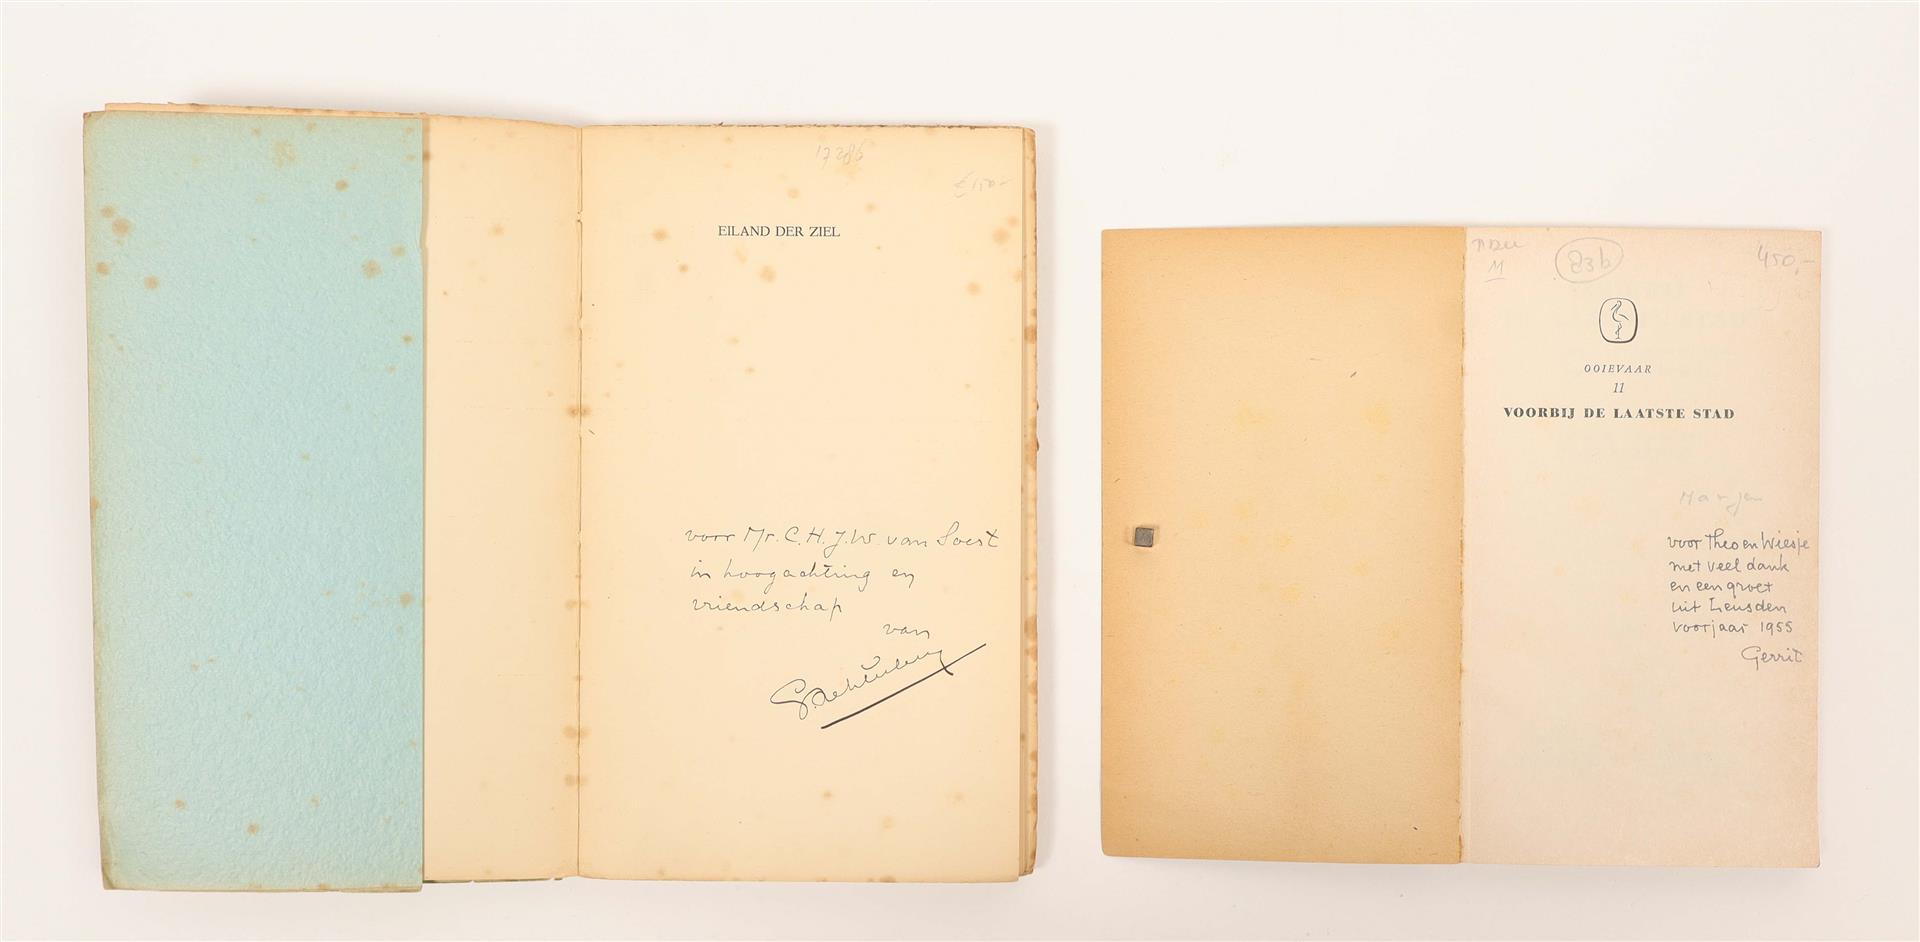 17286
£1,50-
EILAND DER ZIEL
voor Mr. C. H. J. W. van Soest
in hoogachting en
vriendschap
van
G. Achterberg
M
83b
450,-
OOIEVAAR
11
VOORBIJ DE LAATSTE STAD
voor Theo en Wiesje
met veel dank
en een groet
uit Leusden
voorjaar 1955
Gerrit